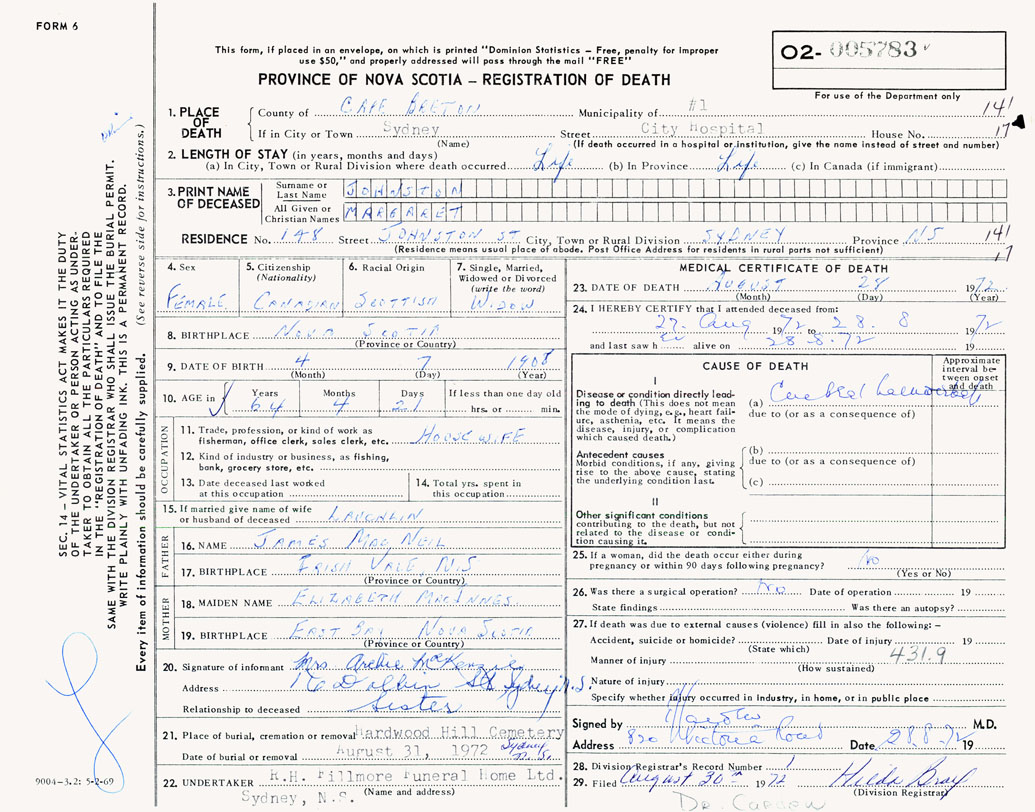 FORM 6
This form, if placed in an envelope, on which is printed "Dominion Statistics – Free, penalty for improper
use $50," and properly addressed will pass through the mail "FREE"
PROVINCE OF NOVA SCOTIA – REGISTRATION OF DEATH
02- 005783
For use of the Department only
1. PLACE OF DEATH
County of CAPE BRETON Municipality of #1 141
If in City or Town Sydney Street City Hospital House No. 17
(Name) (If death occurred in a hospital or institution, give the name instead of street and number)
2. LENGTH OF STAY (in years, months and days)
(a) In City, Town or Rural Division where death occurred Life (b) In Province Life (c) In Canada (if immigrant)
3. PRINT NAME OF DECEASED
Surname or Last Name JOHNSTON
All Given or Christian Names MARGARET
RESIDENCE No. 148 Street JOHNSTON ST. City, Town or Rural Division SYDNEY Province N.S 141
(Residence means usual place of abode. Post Office Address for residents in rural parts not sufficient) 17
4. Sex
FEMALE
5. Citizenship
(Nationality)
CANADIAN
6. Racial Origin
SCOTTISH
7. Single, Married,
Widowed or Divorced
(write the word)
WIDOW
8. BIRTHPLACE NOVA SCOTIA
(Province or Country)
9. DATE OF BIRTH 4 7 1908
(Month) (Day) (Year)
10. AGE in Years Months Days If less than one day old
64 4 21 hrs. or min.
OCCUPATION
11. Trade, profession, or kind of work as
fisherman, office clerk, sales clerk, etc. HOUSEWIFE
12. Kind of industry or business, as fishing,
bank, grocery store, etc.
13. Date deceased last worked
at this occupation
14. Total yrs. spent in
this occupation
15. If married give name of wife
or husband of deceased LAUCHLIN
FATHER
16. NAME JAMES MACNEIL
17. BIRTHPLACE IRISH VALE, N.S
(Province or Country)
MOTHER
18. MAIDEN NAME ELIZABETH MACINNES
19. BIRTHPLACE EAST BAY NOVA SCOTIA
(Province or Country)
20. Signature of informant Mrs. Archie McKenzie
Address 16 St Sydney N.S.
Relationship to deceased Sister
21. Place of burial, cremation or removal Hardwood Hill Cemetery
Date of burial or removal August 31, 1972 Sydney N.S.
22. UNDERTAKER R.H. Fillmore Funeral Home Ltd.
Sydney, N.S. (Name and address)
MEDICAL CERTIFICATE OF DEATH
23. DATE OF DEATH AUGUST 28 1972
(Month) (Day) (Year)
24. I HEREBY CERTIFY that I attended deceased from:
27. Aug 1972 to 28. 8 1972
and last saw h er alive on 28.8.72 19
CAUSE OF DEATH
Approximate
interval be-
tween onset
and death
I
Disease or condition directly lead-
ing to death (This does not mean
the mode of dying, e.g., heart fail-
ure, asthenia, etc. It means the
disease, injury, or complication
which caused death.)
(a) Cerebral
due to (or as a consequence of)
Antecedent causes
Morbid conditions, if any, giving
rise to the above cause, stating
the underlying condition last.
(b)
due to (or as a consequence of)
(c)
II
Other significant conditions
contributing to the death, but not
related to the disease or condi-
tion causing it.
25. If a woman, did the death occur either during
pregnancy or within 90 days following pregnancy? No
(Yes or No)
26. Was there a surgical operation? No Date of operation 19
State findings Was there an autopsy?
27. If death was due to external causes (violence) fill in also the following: –
Accident, suicide or homicide? Date of injury 19
(State which) 431.9
Manner of injury
(How sustained)
Nature of injury
Specify whether injury occurred in industry, in home, or in public place
Signed by M.D.
Address Victoria Road Date 28.8.72 19
28. Division Registrar's Record Number 1
29. Filed August 30th 1972 Hilda Bray
(Division Registrar)
SEC. 14 – VITAL STATISTICS ACT MAKES IT THE DUTY
OF THE UNDERTAKER OR PERSON ACTING AS UNDER-
TAKER TO OBTAIN ALL THE PARTICULARS REQUIRED
IN THE "REGISTRATION OF DEATH" AND TO FILE THE
SAME WITH THE DIVISION REGISTRAR WHO SHALL ISSUE THE BURIAL PERMIT.
WRITE PLAINLY WITH UNFADING INK. THIS IS A PERMANENT RECORD.
Every item of information should be carefully supplied. (See reverse side for instructions.)
9004-3.2: 5-2-69